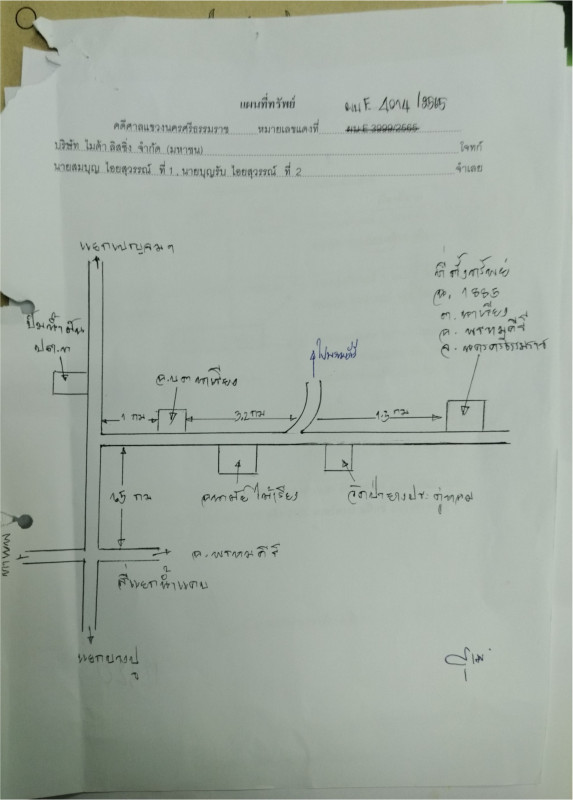 แผนที่ทรัพย์
ผบ E 4014/2565
คดีศาลแขวงนครศรีธรรมราช หมายเลขแดงที่ ผบ E 3999/2565
บริษัท ไมด้า ลิสซิ่ง จำกัด (มหาชน) โจทก์
นายสมบุญ ไอยสุวรรณ์ ที่ 1, นายบุญรับ ไอยสุวรรณ์ ที่ 2 จำเลย
แยกเบญจมฯ
ที่ตั้งทรัพย์
น.ส. 1885
ต. นาเรียง
อ. พรหมคีรี
จ. นครศรีธรรมราช
ปั๊มน้ำมัน
ปตท
อบต นาเรียง
1 กม
3.2 กม
1.3 กม
1.5 กม
วัดป่ายางประตูทอง
อ. พรหมคีรี
สี่แยกน้ำแคบ
แยกบางปู